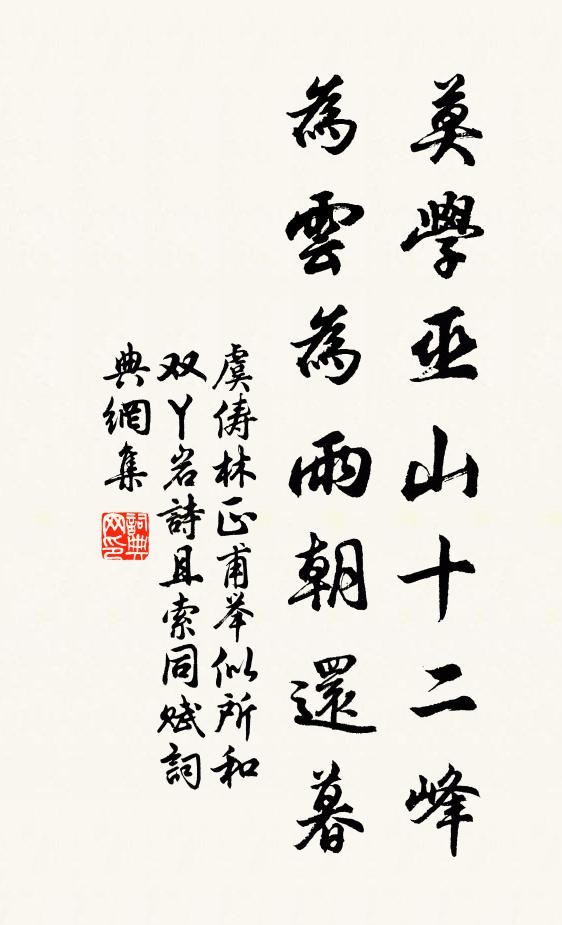 莫學巫山十二峰
為雲為雨朝還暮
虞俦林正甫举似所和
双丫岩詩且索同赋詞
典網集
詞典
网印